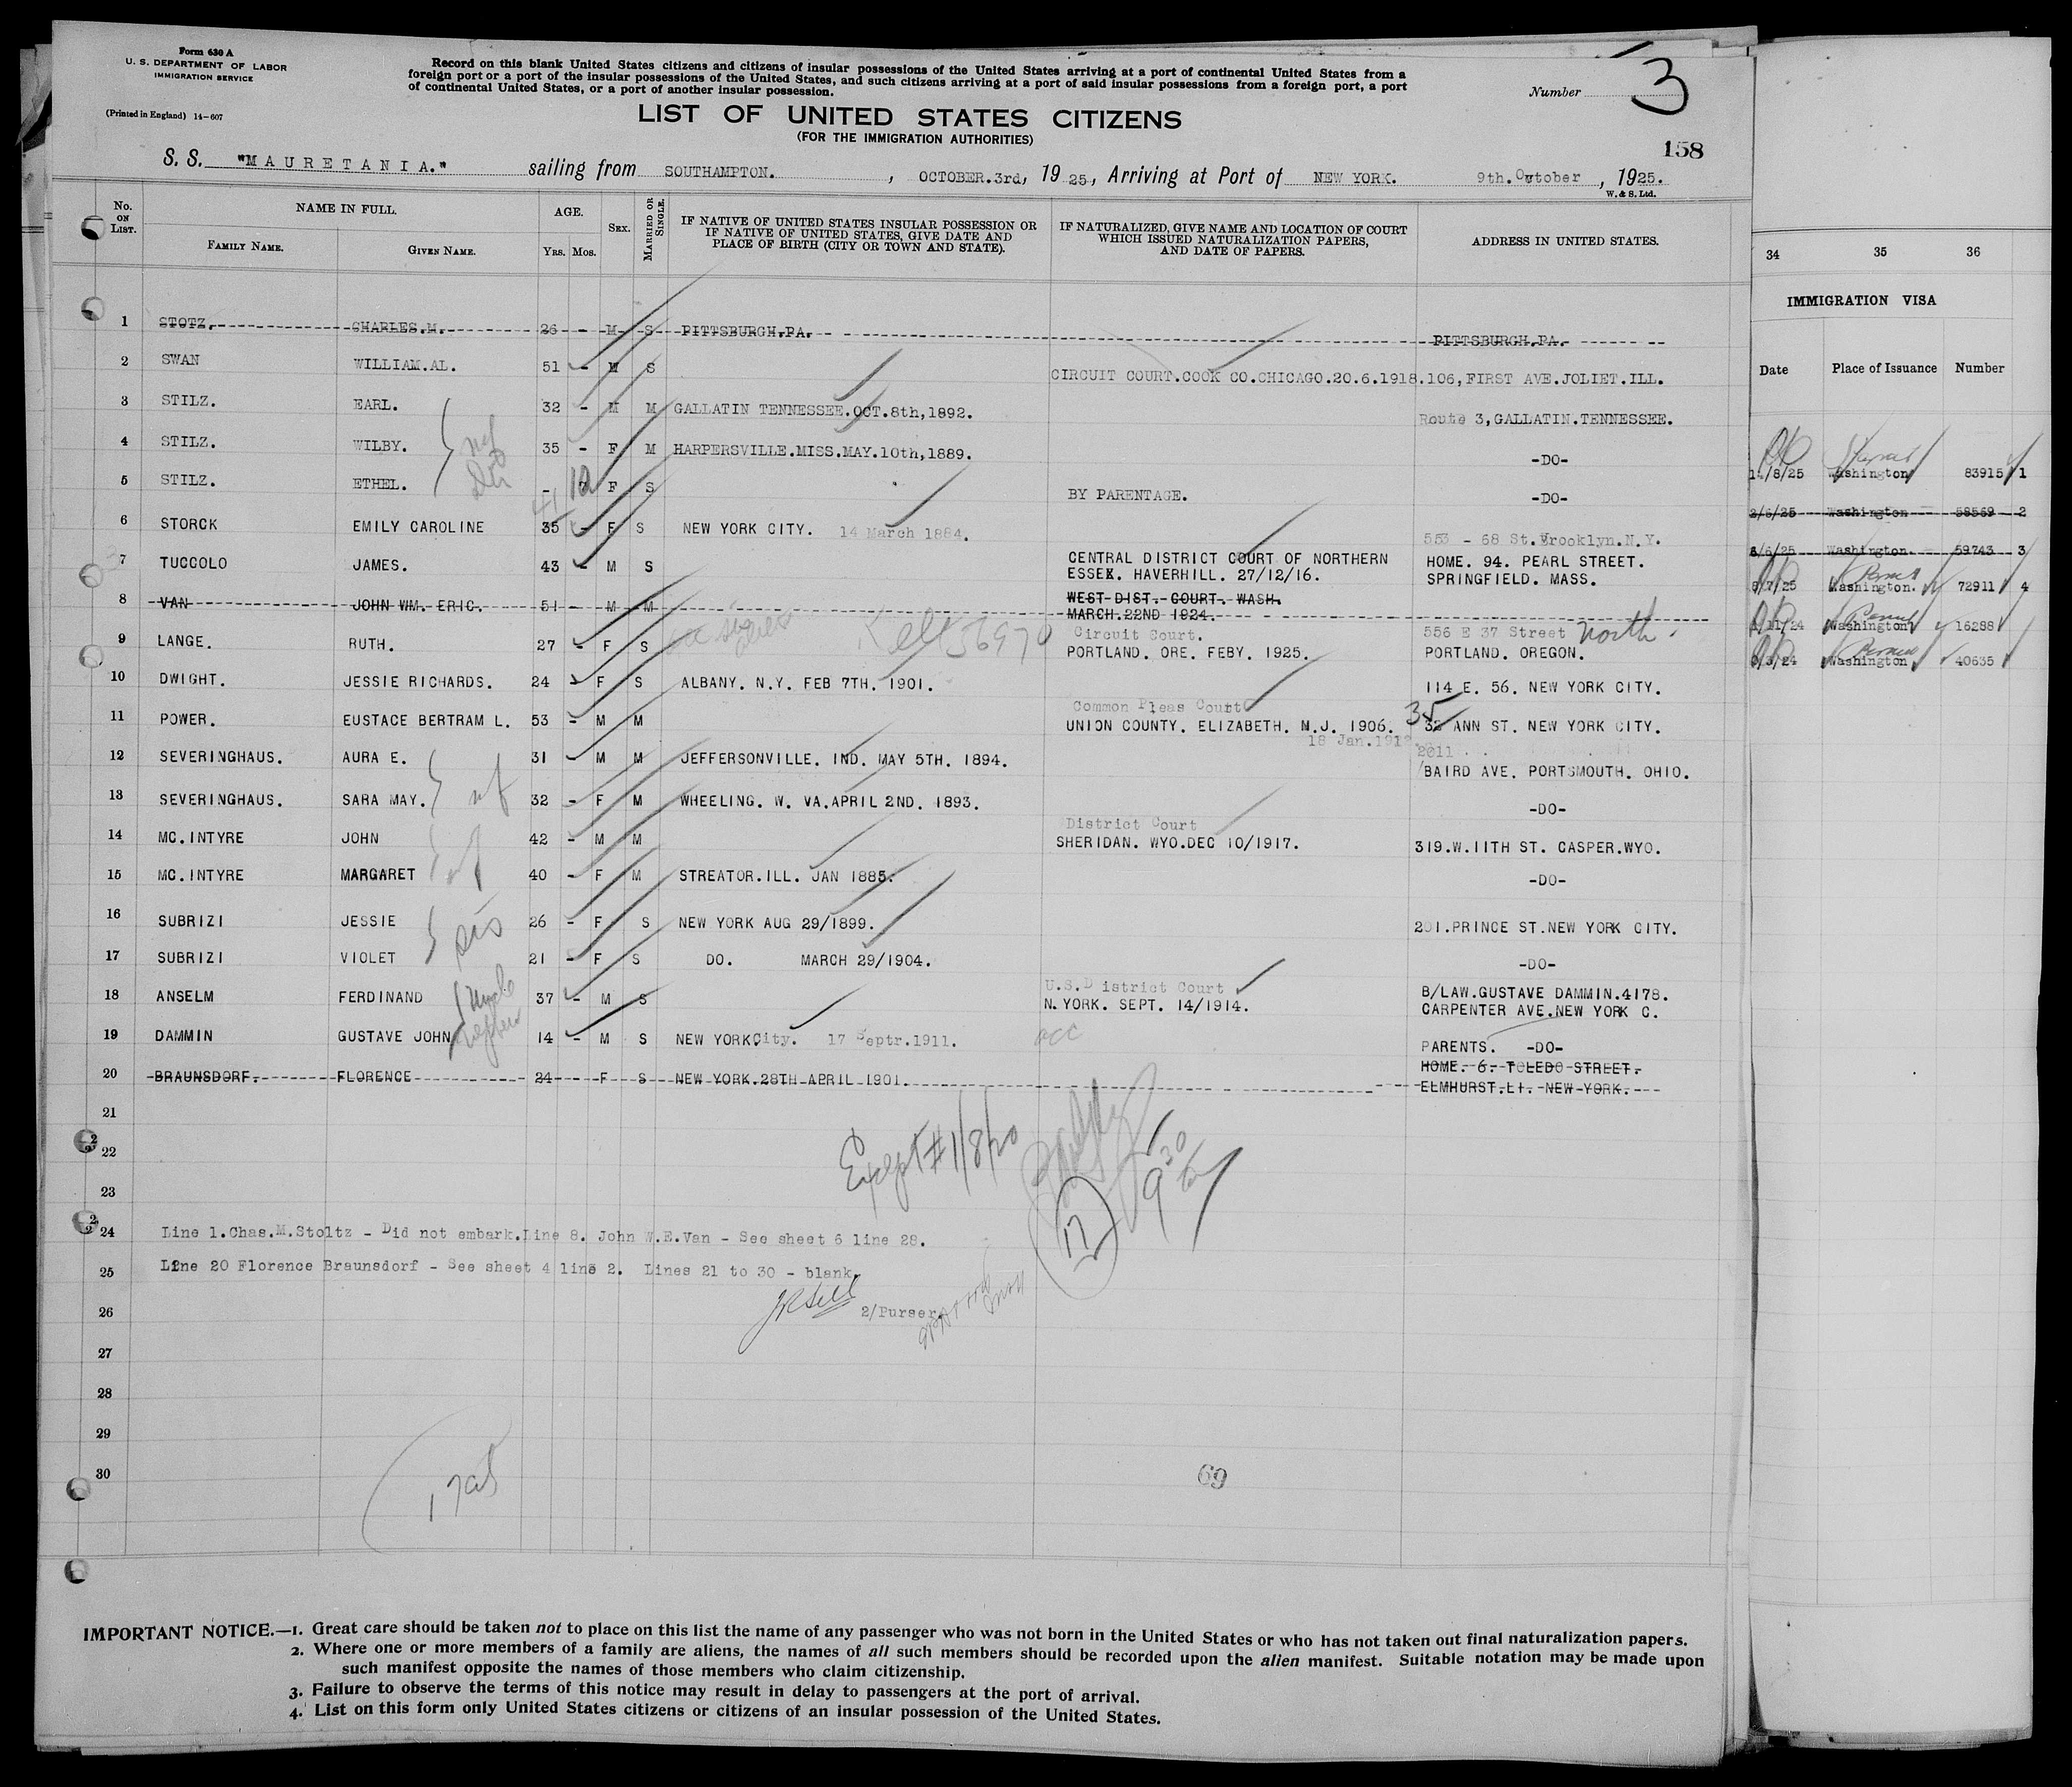 Form 630 A
U. S. DEPARTMENT OF LABOR
IMMIGRATION SERVICE
(Printed in England) 14-607
Record on this blank United States citizens and citizens of insular possessions of the United States arriving at a port of continental United States from a
foreign port or a port of the insular possessions of the United States, and such citizens arriving at a port of said insular possessions from a foreign port, a port
of continental United States, or a port of another insular possession.
Number 3
LIST OF UNITED STATES CITIZENS
(FOR THE IMMIGRATION AUTHORITIES)
158
S. S. "MAURETANIA." sailing from SOUTHAMPTON. , OCTOBER.3rd, 1925, Arriving at Port of NEW YORK. 9th. October , 1925.
W. & S. Ltd.
No. ON LIST. NAME IN FULL. AGE. SEX. MARRIED OR SINGLE. IF NATIVE OF UNITED STATES INSULAR POSSESSION OR IF NATIVE OF UNITED STATES, GIVE DATE AND PLACE OF BIRTH (CITY OR TOWN AND STATE). IF NATURALIZED, GIVE NAME AND LOCATION OF COURT WHICH ISSUED NATURALIZATION PAPERS, AND DATE OF PAPERS. ADDRESS IN UNITED STATES.
FAMILY NAME. GIVEN NAME. YRS. MOS.
1 STOTZ. CHARLES.M. 26 - M S PITTSBURGH.PA. PITTSBURGH.PA.
2 SWAN WILLIAM.AL. 51 - M S CIRCUIT COURT.COOK CO.CHICAGO.20.6.1918. 106,FIRST AVE.JOLIET.ILL.
3 STILZ. EARL. 32 - M M GALLATIN TENNESSEE.OCT.8th,1892. Route 3,GALLATIN.TENNESSEE.
4 STILZ. WILBY. 35 - F M HARPERSVILLE.MISS.MAY.10th,1889. -DO-
5 STILZ. ETHEL. - F S BY PARENTAGE. -DO-
41
6 STORCK EMILY CAROLINE 35 - F S NEW YORK CITY. 14 March 1884. 553 - 68 St.Brooklyn.N.Y.
7 TUCCOLO JAMES. 43 - M S CENTRAL DISTRICT COURT OF NORTHERN HOME. 94. PEARL STREET.
ESSEX. HAVERHILL. 27/12/16. SPRINGFIELD. MASS.
8 VAN JOHN WM. ERIC. 51 - M M WEST DIST. COURT. WASH.
MARCH.22ND 1924.
9 LANGE. RUTH. 27 - F S Circuit Court. 556 E 37 Street North.
PORTLAND. ORE. FEBY. 1925. PORTLAND. OREGON.
10 DWIGHT. JESSIE RICHARDS. 24 - F S ALBANY. N.Y. FEB 7TH. 1901. 114 E. 56. NEW YORK CITY.
Common Pleas Court 35
11 POWER. EUSTACE BERTRAM L. 53 - M M UNION COUNTY. ELIZABETH. N.J. 1906. 32 ANN ST. NEW YORK CITY.
18 Jan.1912. 2011
12 SEVERINGHAUS. AURA E. 31 - M M JEFFERSONVILLE. IND. MAY 5TH. 1894. BAIRD AVE. PORTSMOUTH. OHIO.
13 SEVERINGHAUS. SARA MAY. 32 - F M WHEELING. W. VA.APRIL 2ND. 1893. -DO-
District Court
14 MC.INTYRE JOHN 42 - M M SHERIDAN. WYO.DEC 10/1917. 319.W.11TH ST. CASPER.WYO.
15 MC.INTYRE MARGARET 40 - F M STREATOR.ILL. JAN 1885. -DO-
16 SUBRIZI JESSIE 26 - F S NEW YORK AUG 29/1899. 201.PRINCE ST.NEW YORK CITY.
sis
17 SUBRIZI VIOLET 21 - F S DO. MARCH 29/1904. -DO-
U.S.District Court
18 ANSELM FERDINAND Uncle 37 - M S N.YORK. SEPT. 14/1914. B/LAW.GUSTAVE DAMMIN.4178.
CARPENTER AVE.NEW YORK C.
19 DAMMIN GUSTAVE JOHN nephew 14 - M S NEW YORK City. 17 Septr.1911. PARENTS. -DO-
20 BRAUNSDORF. FLORENCE 24 - F S NEW YORK.28TH APRIL 1901. HOME. 6. TOLEDO STREET.
ELMHURST.LI. NEW YORK.
21
22
Except #1/8/20
9 30
17
23
24 Line 1.Chas.M.Stoltz - Did not embark.Line 8. John W.E.Van - See sheet 6 line 28.
25 Line 20 Florence Braunsdorf - See sheet 4 line 2. Lines 21 to 30 - blank.
26 2/Purser.
27
28
29
30
69
IMPORTANT NOTICE.—1. Great care should be taken not to place on this list the name of any passenger who was not born in the United States or who has not taken out final naturalization papers.
2. Where one or more members of a family are aliens, the names of all such members should be recorded upon the alien manifest. Suitable notation may be made upon
such manifest opposite the names of those members who claim citizenship.
3. Failure to observe the terms of this notice may result in delay to passengers at the port of arrival.
4. List on this form only United States citizens or citizens of an insular possession of the United States.
34 35 36
IMMIGRATION VISA
Date Place of Issuance Number
/8/25 Washington 83915 1
2/6/25 Washington 58569 2
8/6/25 Washington. 59743 3
8/7/25 Washington. 72911 4
/11/24 Washington 16288
3/3/24 Washington 40635